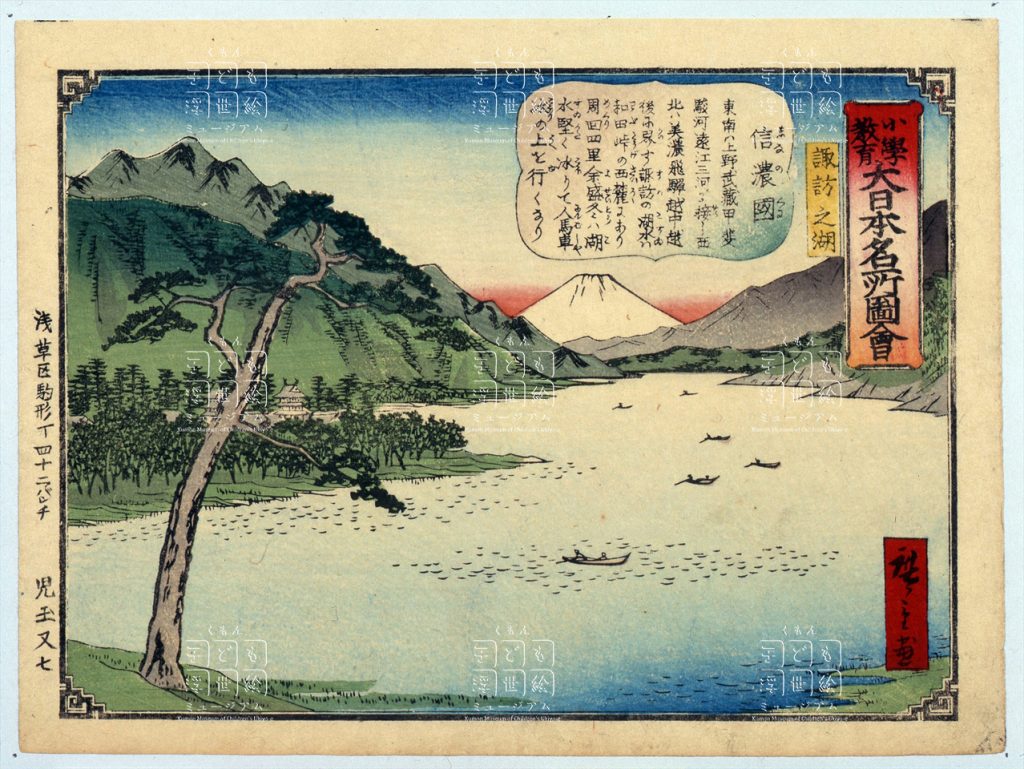 小學
教育
大日本名所圖會
諏訪之湖
信濃國
東南ハ上野武藏甲斐
駿河遠江三河に接し西
北ハ美濃飛驒越中越
後に界す諏訪の湖水ハ
和田峠の西麓にあり
周回四里余盛冬ハ湖
水堅く氷りて人馬車
氷の上を行くなり
廣重画
浅草区駒形丁四十二バンチ
児玉又七
くもん
子ども
浮世絵
ミュージアム
Kumon Museum of Children's Ukiyoe